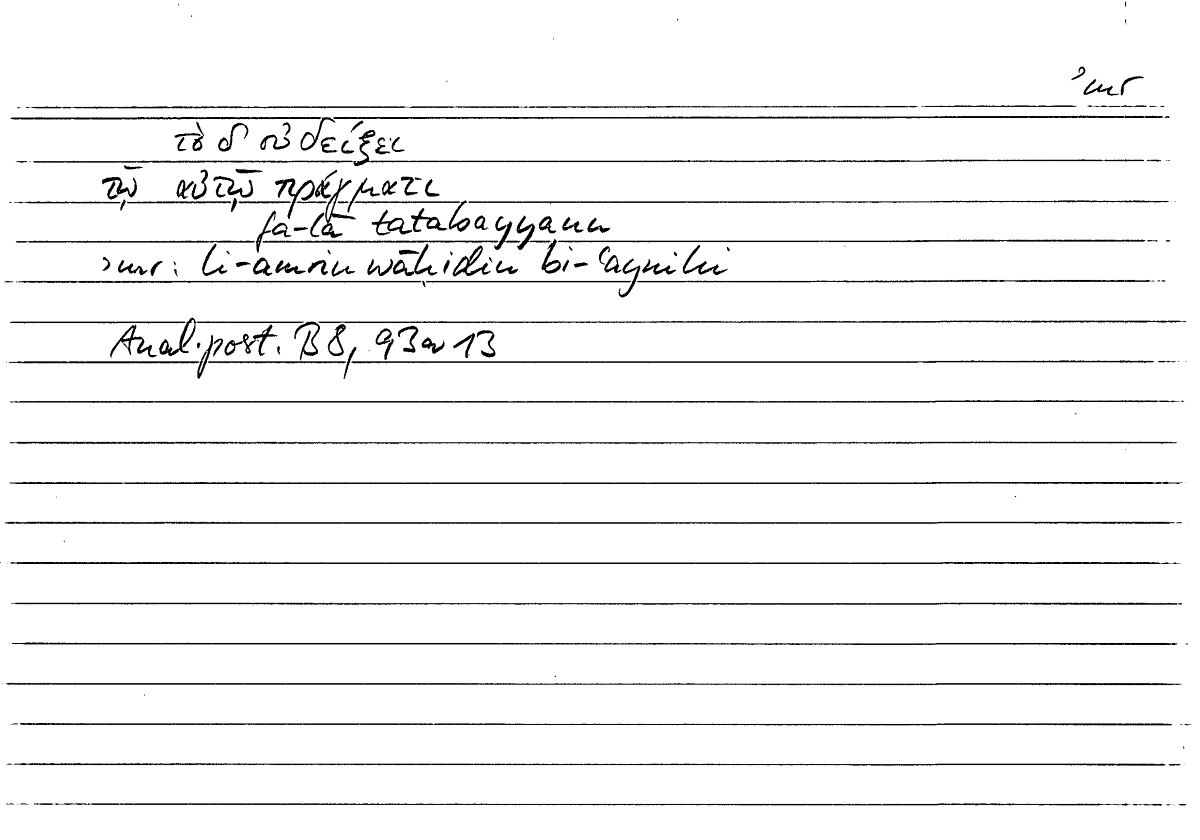 ʾmr
τὸ δ' οὐ δείξει
τῷ αὐτῷ πράγματι
fa-lā tatabayyanu
ʾmr: li-amrin wāḥidin bi-ʿaynihi
Anal. post. B 8, 93a 13